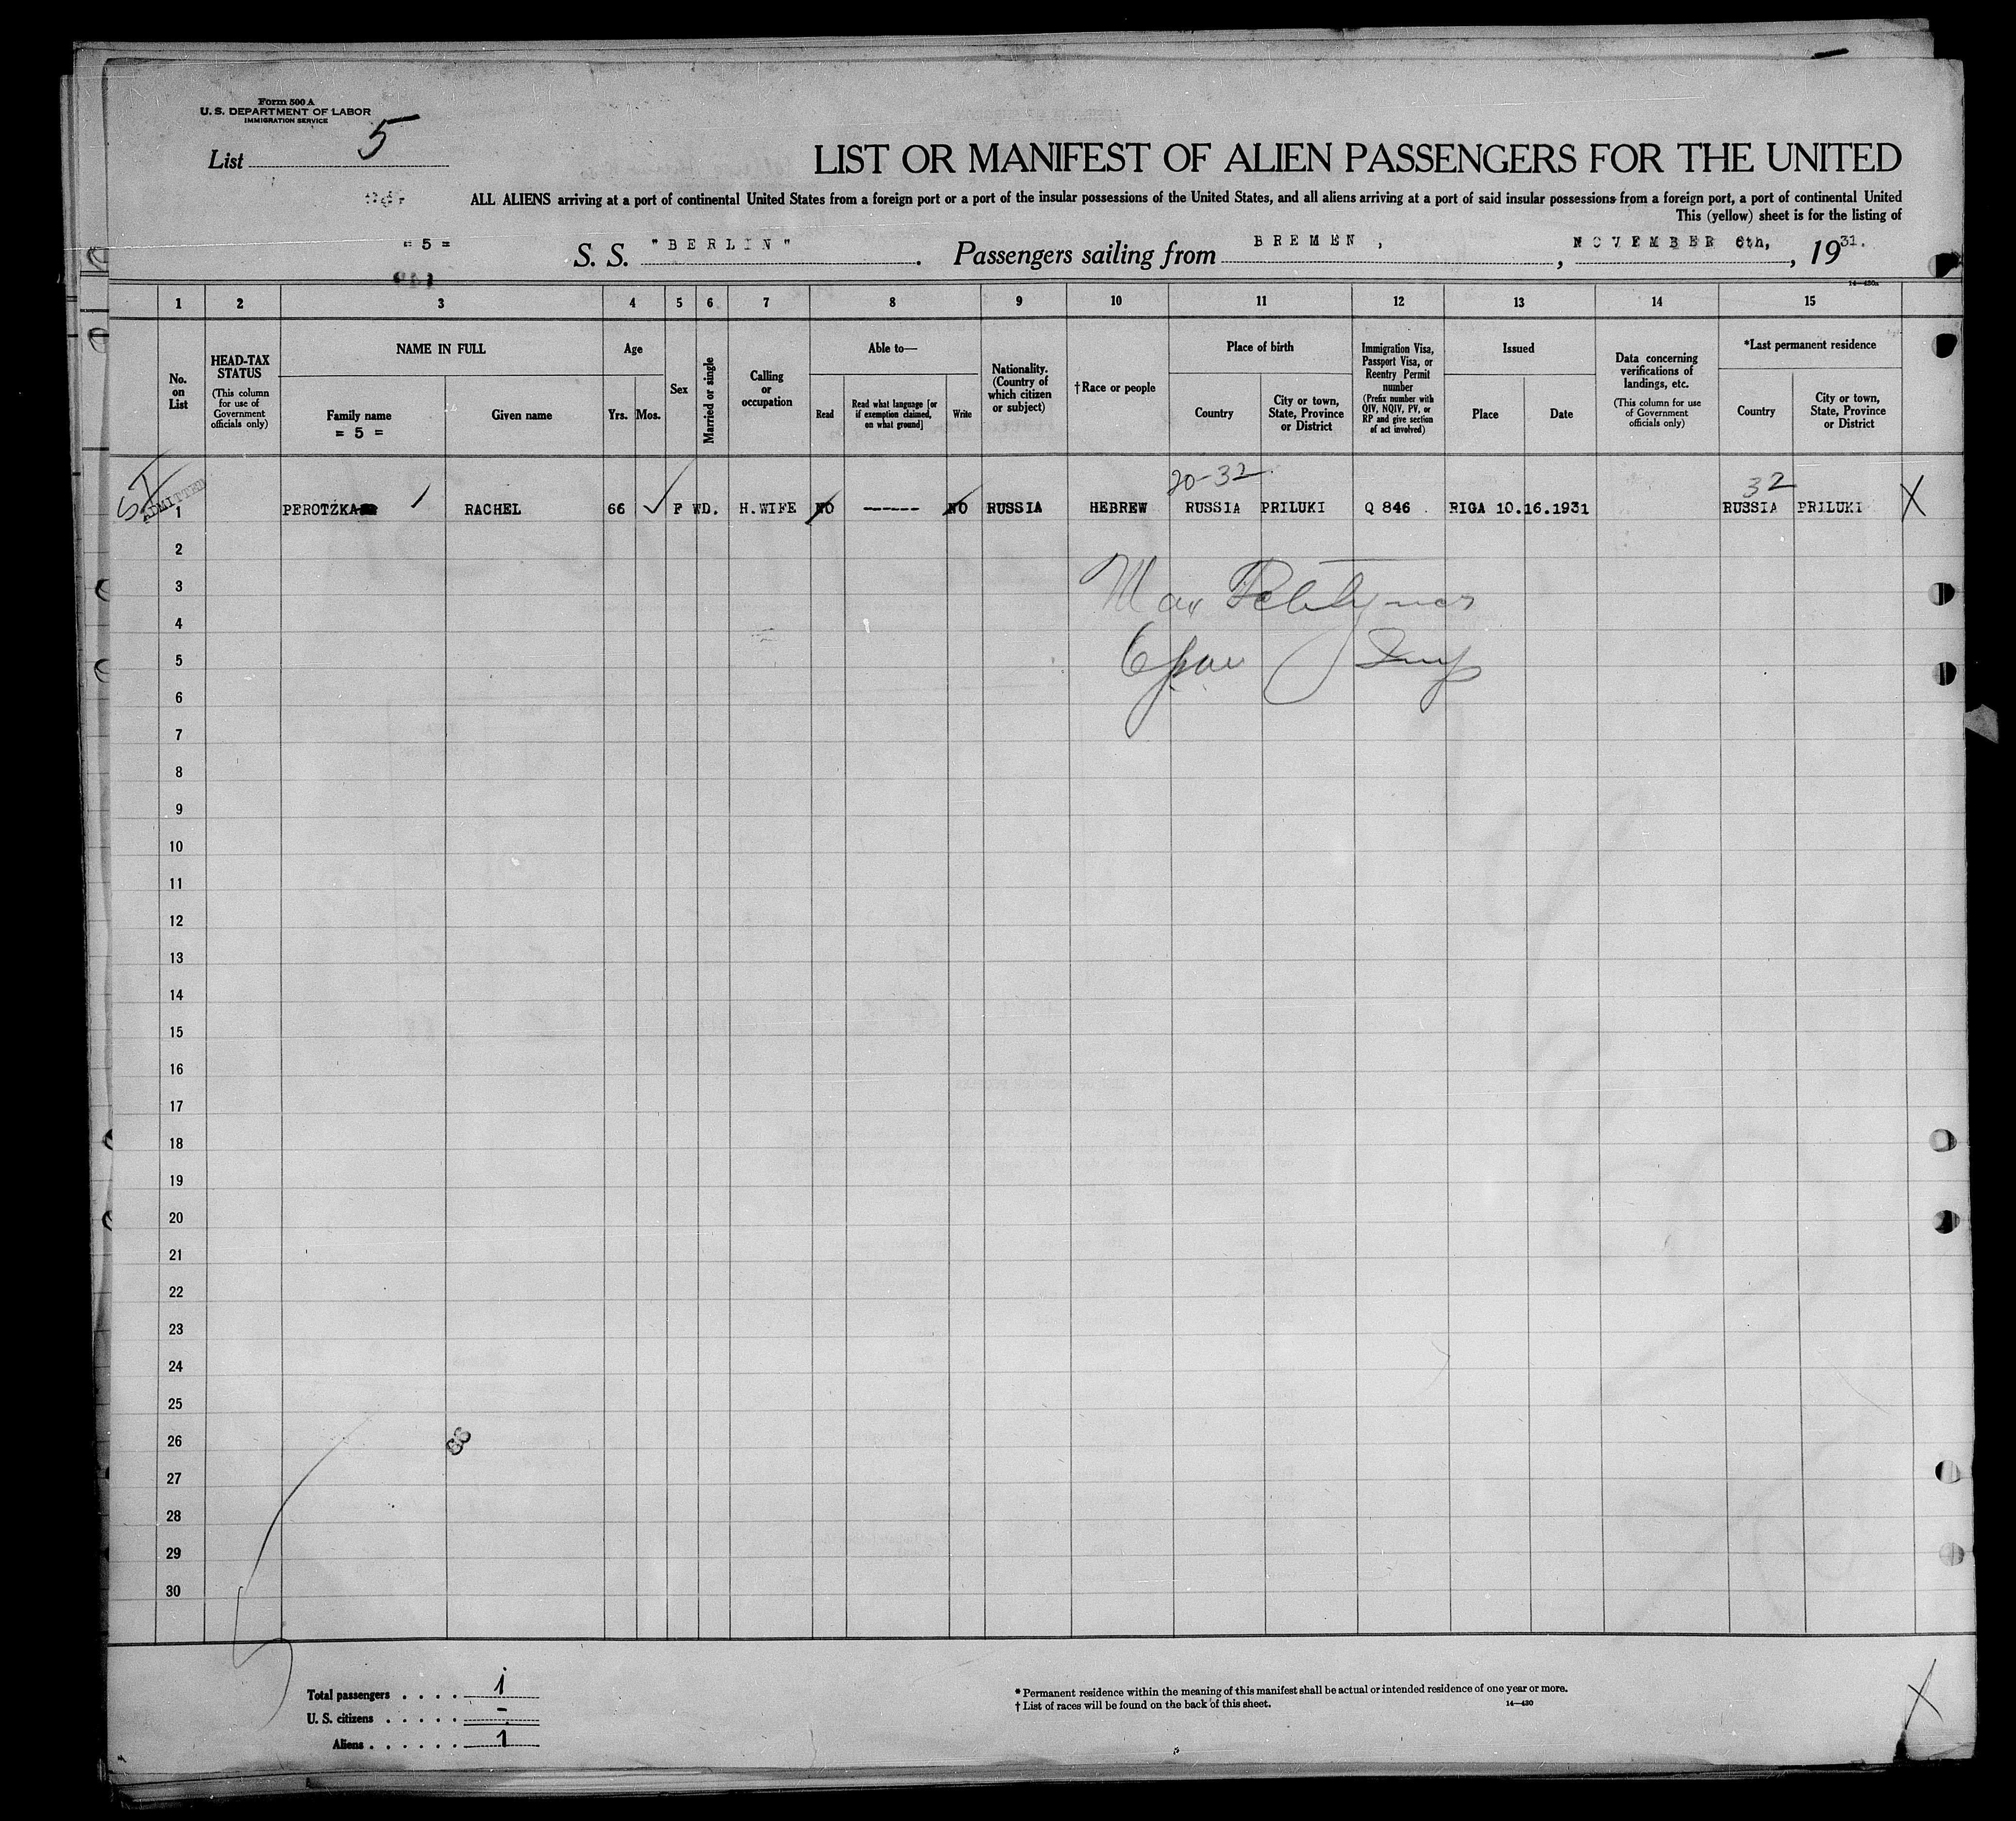 Form 500 A
U. S. DEPARTMENT OF LABOR
IMMIGRATION SERVICE
List 5
LIST OR MANIFEST OF ALIEN PASSENGERS FOR THE UNITED
ALL ALIENS arriving at a port of continental United States from a foreign port or a port of the insular possessions of the United States, and all aliens arriving at a port of said insular possessions from a foreign port, a port of continental United
This (yellow) sheet is for the listing of
= 5 = S. S. "BERLIN". Passengers sailing from BREMEN, , NOVEMBER 6th, , 1931.
14—430a
1 2 3 4 5 6 7 8 9 10 11 12 13 14 15
No. on List
HEAD-TAX STATUS
(This column for use of Government officials only)
NAME IN FULL
Family name
= 5 =
Given name
Age
Yrs. Mos.
Sex
Married or single
Calling or occupation
Able to—
Read
Read what language [or if exemption claimed, on what ground]
Write
Nationality. (Country of which citizen or subject)
†Race or people
Place of birth
Country
City or town, State, Province or District
Immigration Visa, Passport Visa, or Reentry Permit number
(Prefix number with QIV, NQIV, PV, or RP and give section of act involved)
Issued
Place
Date
Data concerning verifications of landings, etc.
(This column for use of Government officials only)
*Last permanent residence
Country
City or town, State, Province or District
20-32
32
ADMITTED
1 PEROTZKA RACHEL 66 F WD. H.WIFE NO ------ NO RUSSIA HEBREW RUSSIA PRILUKI Q 846 RIGA 10.16.1931 RUSSIA PRILUKI X
2
3 Max
4
5
6
7
8
9
10
11
12
13
14
15
16
17
18
19
20
21
22
23
24
25
26
27
28
29
30
Total passengers . . . . 1
U. S. citizens . . . . . -
Aliens . . . . . . 1
* Permanent residence within the meaning of this manifest shall be actual or intended residence of one year or more.
† List of races will be found on the back of this sheet. 14—430
X